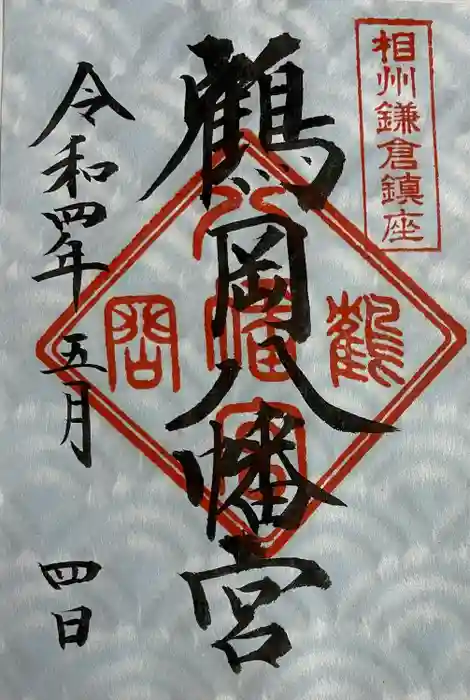 相州鎌倉鎮座
鶴岡八幡宮
鶴
岡
八
幡
宮
令和四年五月四日